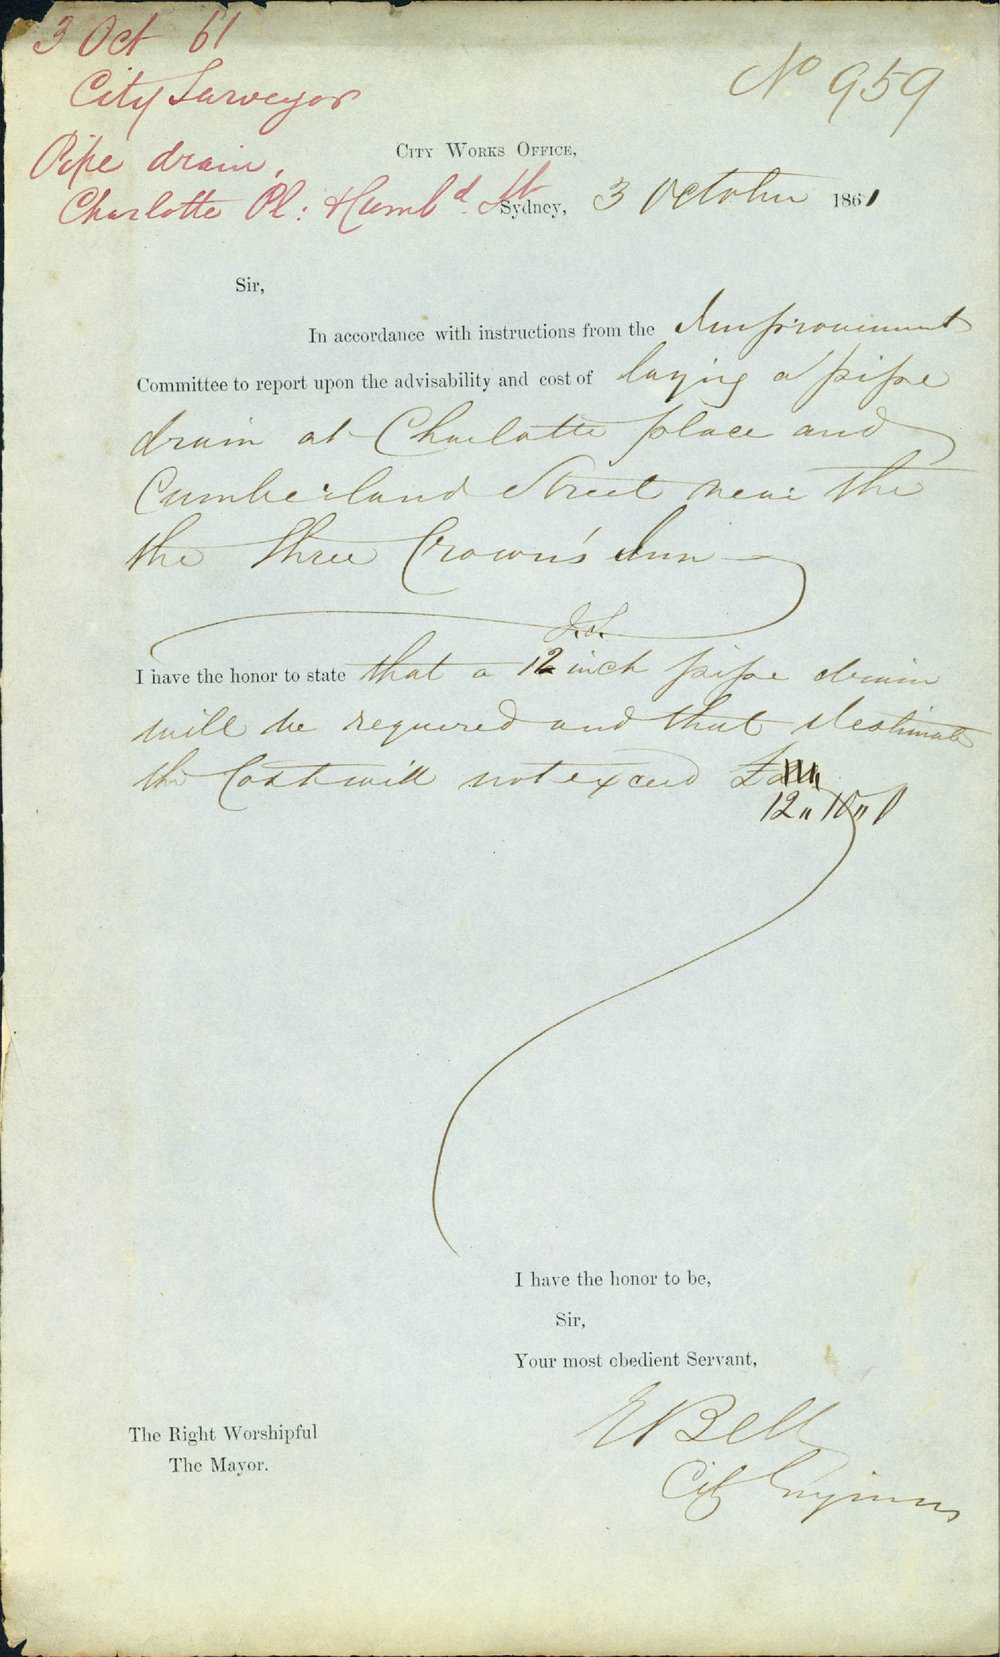 3 Oct 61
City Surveyor
Pipe drain,
Charlotte Pl: & Humbd St
No 959
City Works Office,
Sydney, 3 October 1861
Sir,
In accordance with instructions from the Improvement
Committee to report upon the advisability and cost of laying a pipe
drain at Charlotte place and
Cumberland Street near the
the Three Crown's Inn
I have the honor to state that a 12 inch pipe drain
will be required and that I estimate
the Cost will not exceed £
12 " 10 "
I have the honor to be,
Sir,
Your most obedient Servant,
E Bell
City Engineer
The Right Worshipful
The Mayor.